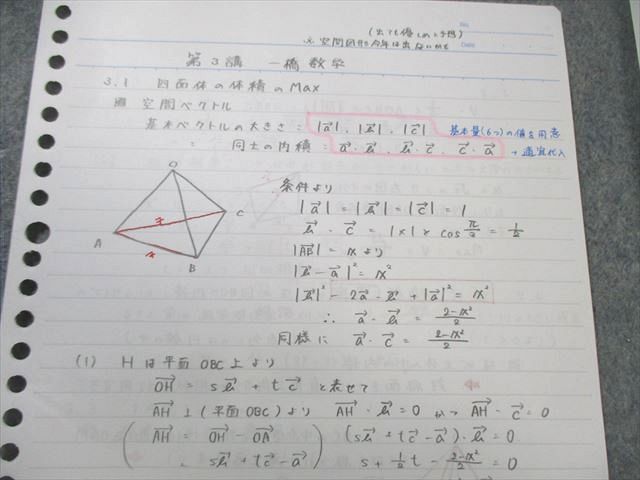 (出ても優しめと予想)
※空間図形今年は出ないかも
第3講 一橋数学
3.1 四面体の体積のMax
空間ベクトル
基本ベクトルの大きさ: |a⃗|, |b⃗|, |c⃗| 基本量(6つ)の値を用意
同士の内積: a⃗・b⃗, b⃗・c⃗, c⃗・a⃗ + 適宜代入
O
A
B
C
x
x
条件より
|a⃗| = |b⃗| = |c⃗| = 1
b⃗・c⃗ = 1×1×cos π/3 = 1/2
|AB⃗| = x より
|b⃗ - a⃗|² = x²
|b⃗|² - 2a⃗・b⃗ + |a⃗|² = x²
∴ a⃗・b⃗ = (2-x²)/2
同様に a⃗・c⃗ = (2-x²)/2
(1) Hは平面OBC上より
OH⃗ = sb⃗ + tc⃗ と表せて
AH⃗ ⊥ (平面OBC) より AH⃗・b⃗ = 0 かつ AH⃗・c⃗ = 0
(AH⃗ = OH⃗ - OA⃗ (sb⃗ + tc⃗ - a⃗)・b⃗ = 0
= sb⃗ + tc⃗ - a⃗) s + 1/2 t - (2-x²)/2 = 0